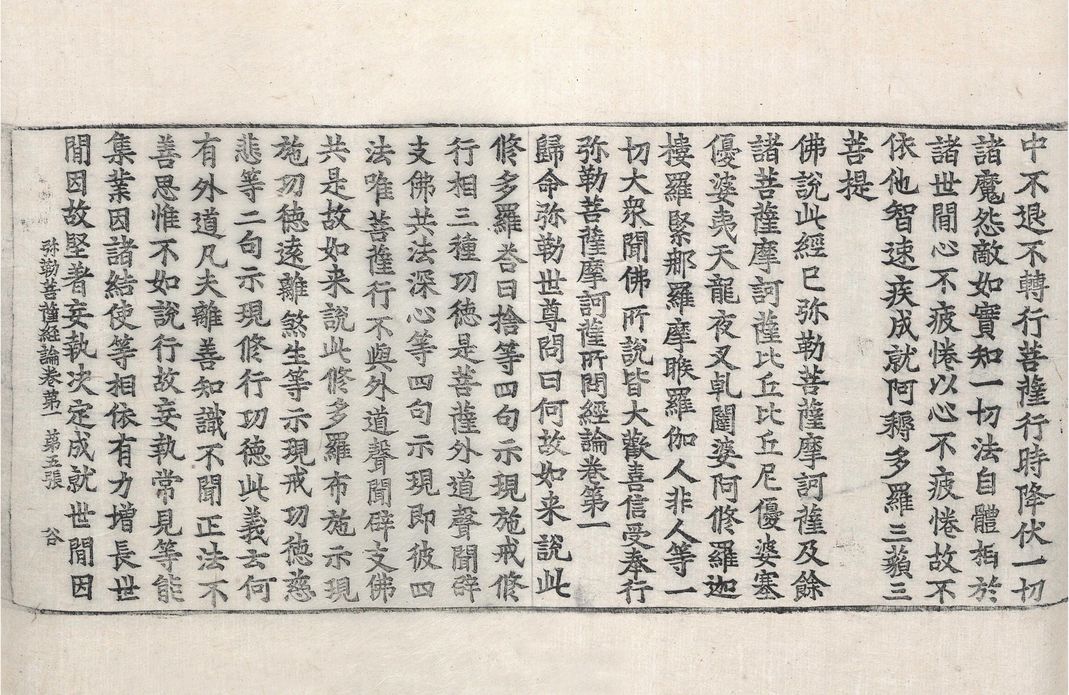 中不退不轉行菩薩行時降伏一切
諸魔怨敵如實知一切法自體相於
諸世間心不疲惓以心不疲惓故不
依他智速疾成就阿耨多羅三藐三
菩提
佛說此經已弥勒菩薩摩訶薩及餘
諸菩薩摩訶薩比丘比丘尼優婆塞
優婆夷天龍夜叉乹闥婆阿修羅迦
樓羅緊那羅摩睺羅伽人非人等一
切大衆聞佛所說皆大歡喜信受奉行
弥勒菩薩摩訶薩所問經論卷第一
歸命弥勒世尊問曰何故如来說此
修多羅荅曰捨等四句示現施戒修
行相三種功德是菩薩外道聲聞辟
支佛共法深心等四句示現即彼四
法唯菩薩行不與外道聲聞辟支佛
共是故如来說此修多羅布施示現
施功德遠離煞生等示現戒功德慈
悲等二句示現修行功德此義云何
有外道凡夫離善知識不聞正法不
善思惟不如說行故妄執常見等能
集業因諸結使等相依有力增長世
間因故堅著妄執次定成就世間因
弥勒菩薩經論卷第一 第五張 谷